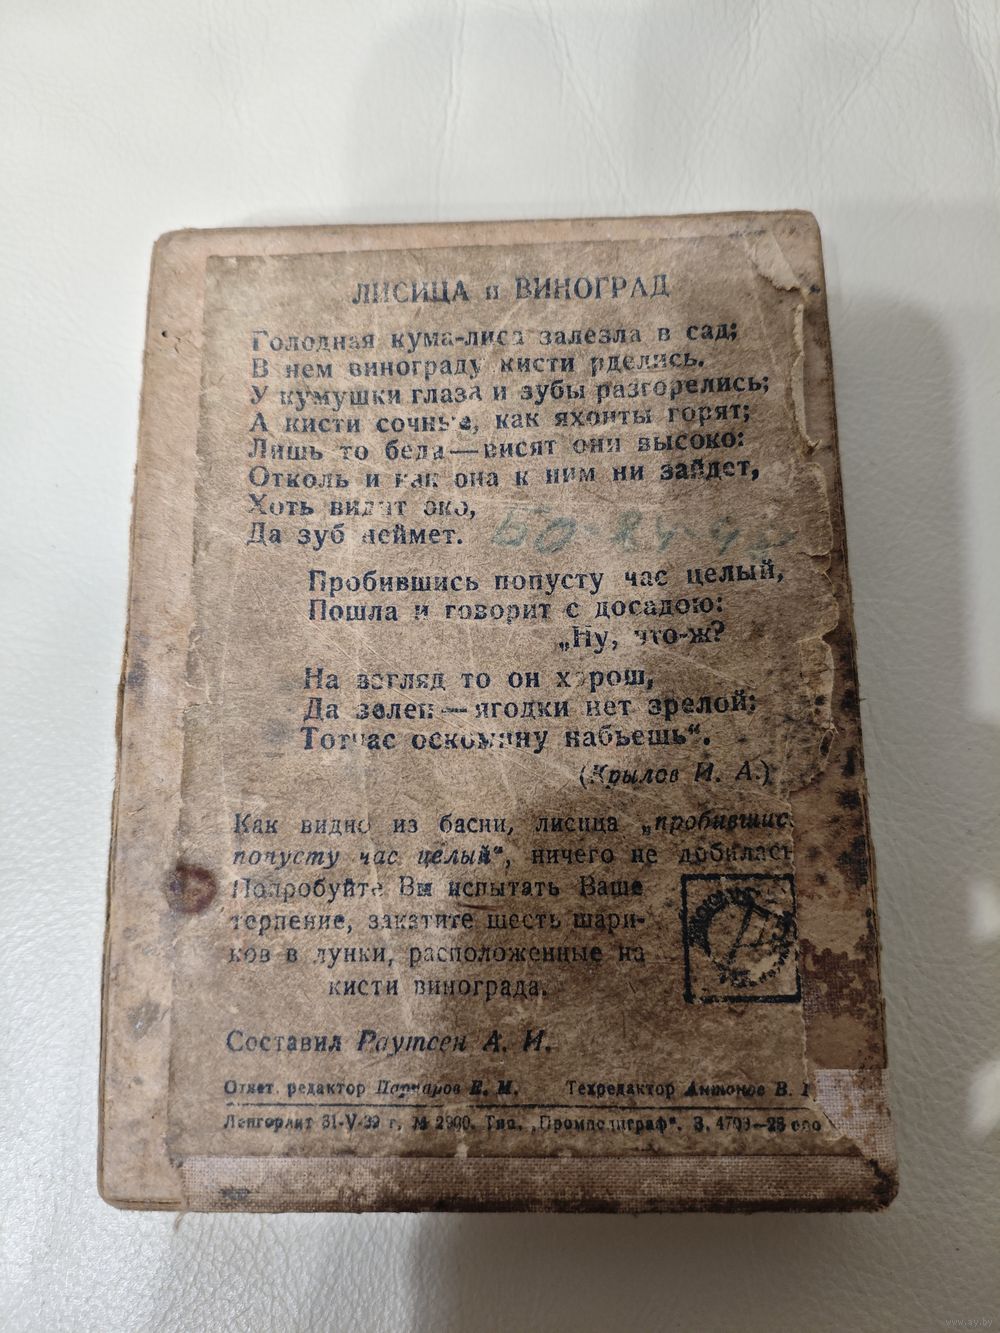 ЛИСИЦА и ВИНОГРАД
Голодная кума-лиса залезла в сад;
В нем винограду кисти рделись.
У кумушки глаза и зубы разгорелись;
А кисти сочные, как яхонты горят;
Лишь то беда—висят они высоко:
Отколь и как она к ним ни зайдет,
Хоть видит око,
Да зуб неймет.
Пробившись попусту час целый,
Пошла и говорит с досадою:
„Ну, что-ж?
На взгляд то он хорош,
Да зелен—ягодки нет зрелой;
Тотчас оскомину набьешь“.
(Крылов И. А.)
Как видно из басни, лисица „пробившис
попусту час целый“, ничего не добилась
Попробуйте Вы испытать Ваше
терпение, закатите шесть шари-
ков в лунки, расположенные на
кисти винограда.
Составил Раутсен А. И.
Ответ. редактор Е. М. Техредактор Антонов В.
Ленгорлит 31-V-39 г. № 2900. Тип. „Промполиграф“. З.
www.ay.by